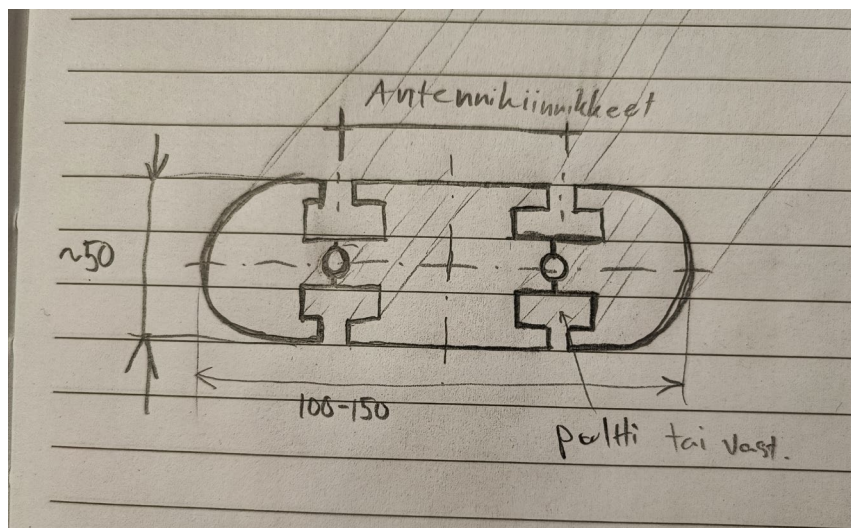 Antennikiinnikkeet
~50
100-150
pultti tai vast.